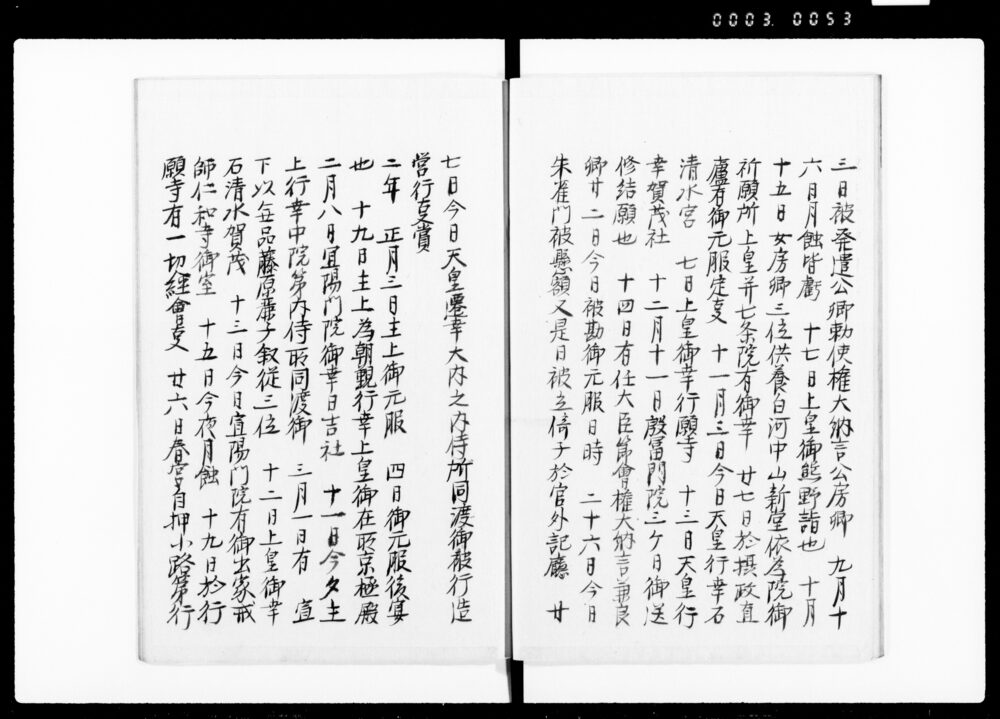 0003. 0053
三日被発遣公卿勅使権大納言公房卿　九月十
六月月蝕皆虧　十七日上皇御熊野詣也　十月
十五日女房卿三位供養白河中山新堂依為院御
祈願所上皇并七条院有御幸　廿七日於摂政直
廬有御元服定事　十一月三日今日天皇行幸石
清水宮　七日上皇御幸行願寺　十三日天皇行
幸賀茂社　十二月十一日殷冨門院三ケ日御送
修結願也　十四日有任大臣節會権大納言兼良
卿廿二日今日被勘御元服日時　二十六日今日
朱雀門被懸額又是日被立倚子於官外記廳　廿
七日今日天皇遷幸大内之内侍所同渡御被行造
営行事賞
二年　正月三日主上御元服　四日御元服後宴
也　十九日主上為朝覲行幸上皇御在所京極殿
二月八日宜陽門院御幸日吉社　十一日今夕主
上行幸中院第内侍所同渡御　三月一日有　宣
下以無品藤原麗子叙従三位　十二日上皇御幸
石清水賀茂　十三日今日宣陽門院有御出家戒
師仁和寺御室　十五日今夜月蝕　十九日於行
願寺有一切経會事　廿六日春宮自押小路第行